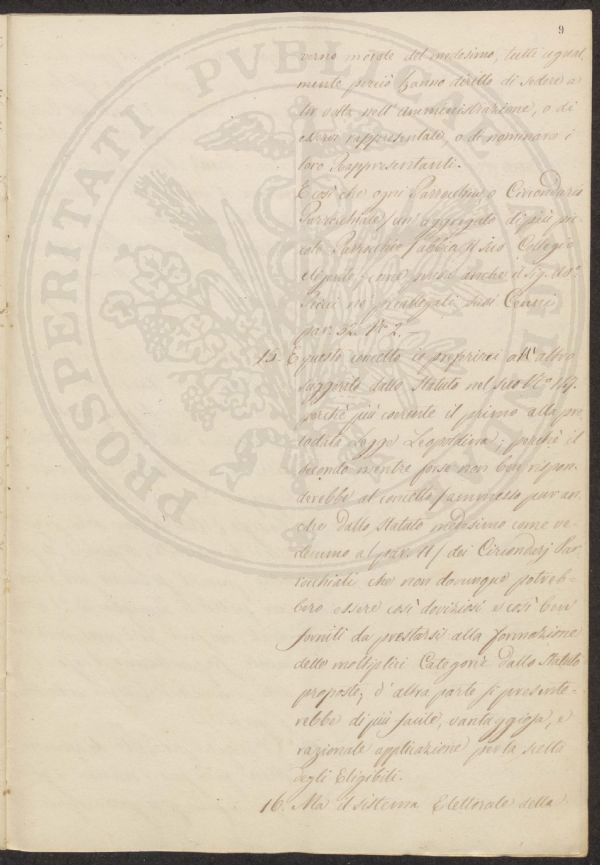 9
verno morale del medesimo, tutti egual,
mente perciò hanno diritto di sedere a
lor volta nell'Amministrazione, o di
esservi rappresentati, o di nominare i
loro Rappresentanti.
E così che ogni Parrocchia o Circondario
Parrocchiale / un aggregato di più pic
cole Parrocchie / abbia il suo Collegio
elegente, come pensa anche il Sig.
Pieri ne' preallegati suoi Cenni
par. 52. N.° 2.°
15. E questo concetto io preferirei all'altro
suggerito dallo Statuto nel suo 149.
perchè più coerente il primo alla pre
lodata Legge Leopoldina; perchè il
secondo mentre forse non ben rispon,
derebbe al concetto / ammesso pur an,
che dallo Statuto medesimo come ve-
demmo al par. 11 / dei Circondarj Par
rocchiali che non dovunque potreb-
bero essere così doviziosi e così ben
forniti da prestarsi alla formazione
delle moltiplici Categorie dallo Statuto
proposte; d'altra parte si presente-
rebbe di più facile, vantaggiosa, e
razionale applicazione per la scelta
degli Eligibili.
16. Ma il sistema Elettorale della
PROSPERITATI PVBLICAE AVGENDAE